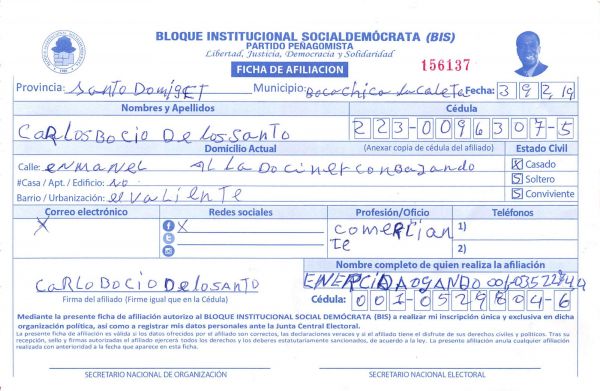 BLOQUE INSTITUCIONAL SOCIALDEMÓCRATA (BIS)
PARTIDO PEÑAGOMISTA
Libertad, Justicia, Democracia y Solidaridad
FICHA DE AFILIACION
156137
Provincia: Santo DomigET Municipio: Bocachica LaCaleta Fecha: 3 9 2, 19
Nombres y Apellidos Cédula
CaRLOSBOCIO DeLosSanto 223-0096307-5
Domicilio Actual (Anexar copia de cédula del afiliado) Estado Civil
Calle: enmanel AL La
#Casa / Apt. / Edificio: no
Barrio / Urbanización: elvaliente
X Casado
S Soltero
S Conviviente
Correo electrónico Redes sociales Profesión/Oficio Teléfonos
X X comercian 1)
te 2)
Nombre completo de quien realiza la afiliación
CaRLOBOCIO Delosanto
Firma del afiliado (Firme igual que en la Cédula)
Cédula: 001-0529804-6
Mediante la presente ficha de afiliación autorizo al BLOQUE INSTITUCIONAL SOCIAL DEMÓCRATA (BIS) a realizar mi inscripción única y exclusiva en dicha
organización política, así como a registrar mis datos personales ante la Junta Central Electoral.
La presente ficha de afiliación es válida si los datos ofrecidos por el afiliado son correctos, las declaraciones veraces y si el afiliado tiene el disfrute de sus derechos civiles y políticos. Tras su
recepción, sello y firmas autorizadas el afiliado ejercerá todos los derechos y los deberes estatutariamente sancionados, de acuerdo a la ley. La presente afiliación anula cualquier afiliación
realizada con anterioridad a la fecha que aparece en esta ficha.
SECRETARIO NACIONAL DE ORGANIZACIÓN SECRETARIO NACIONAL ELECTORAL